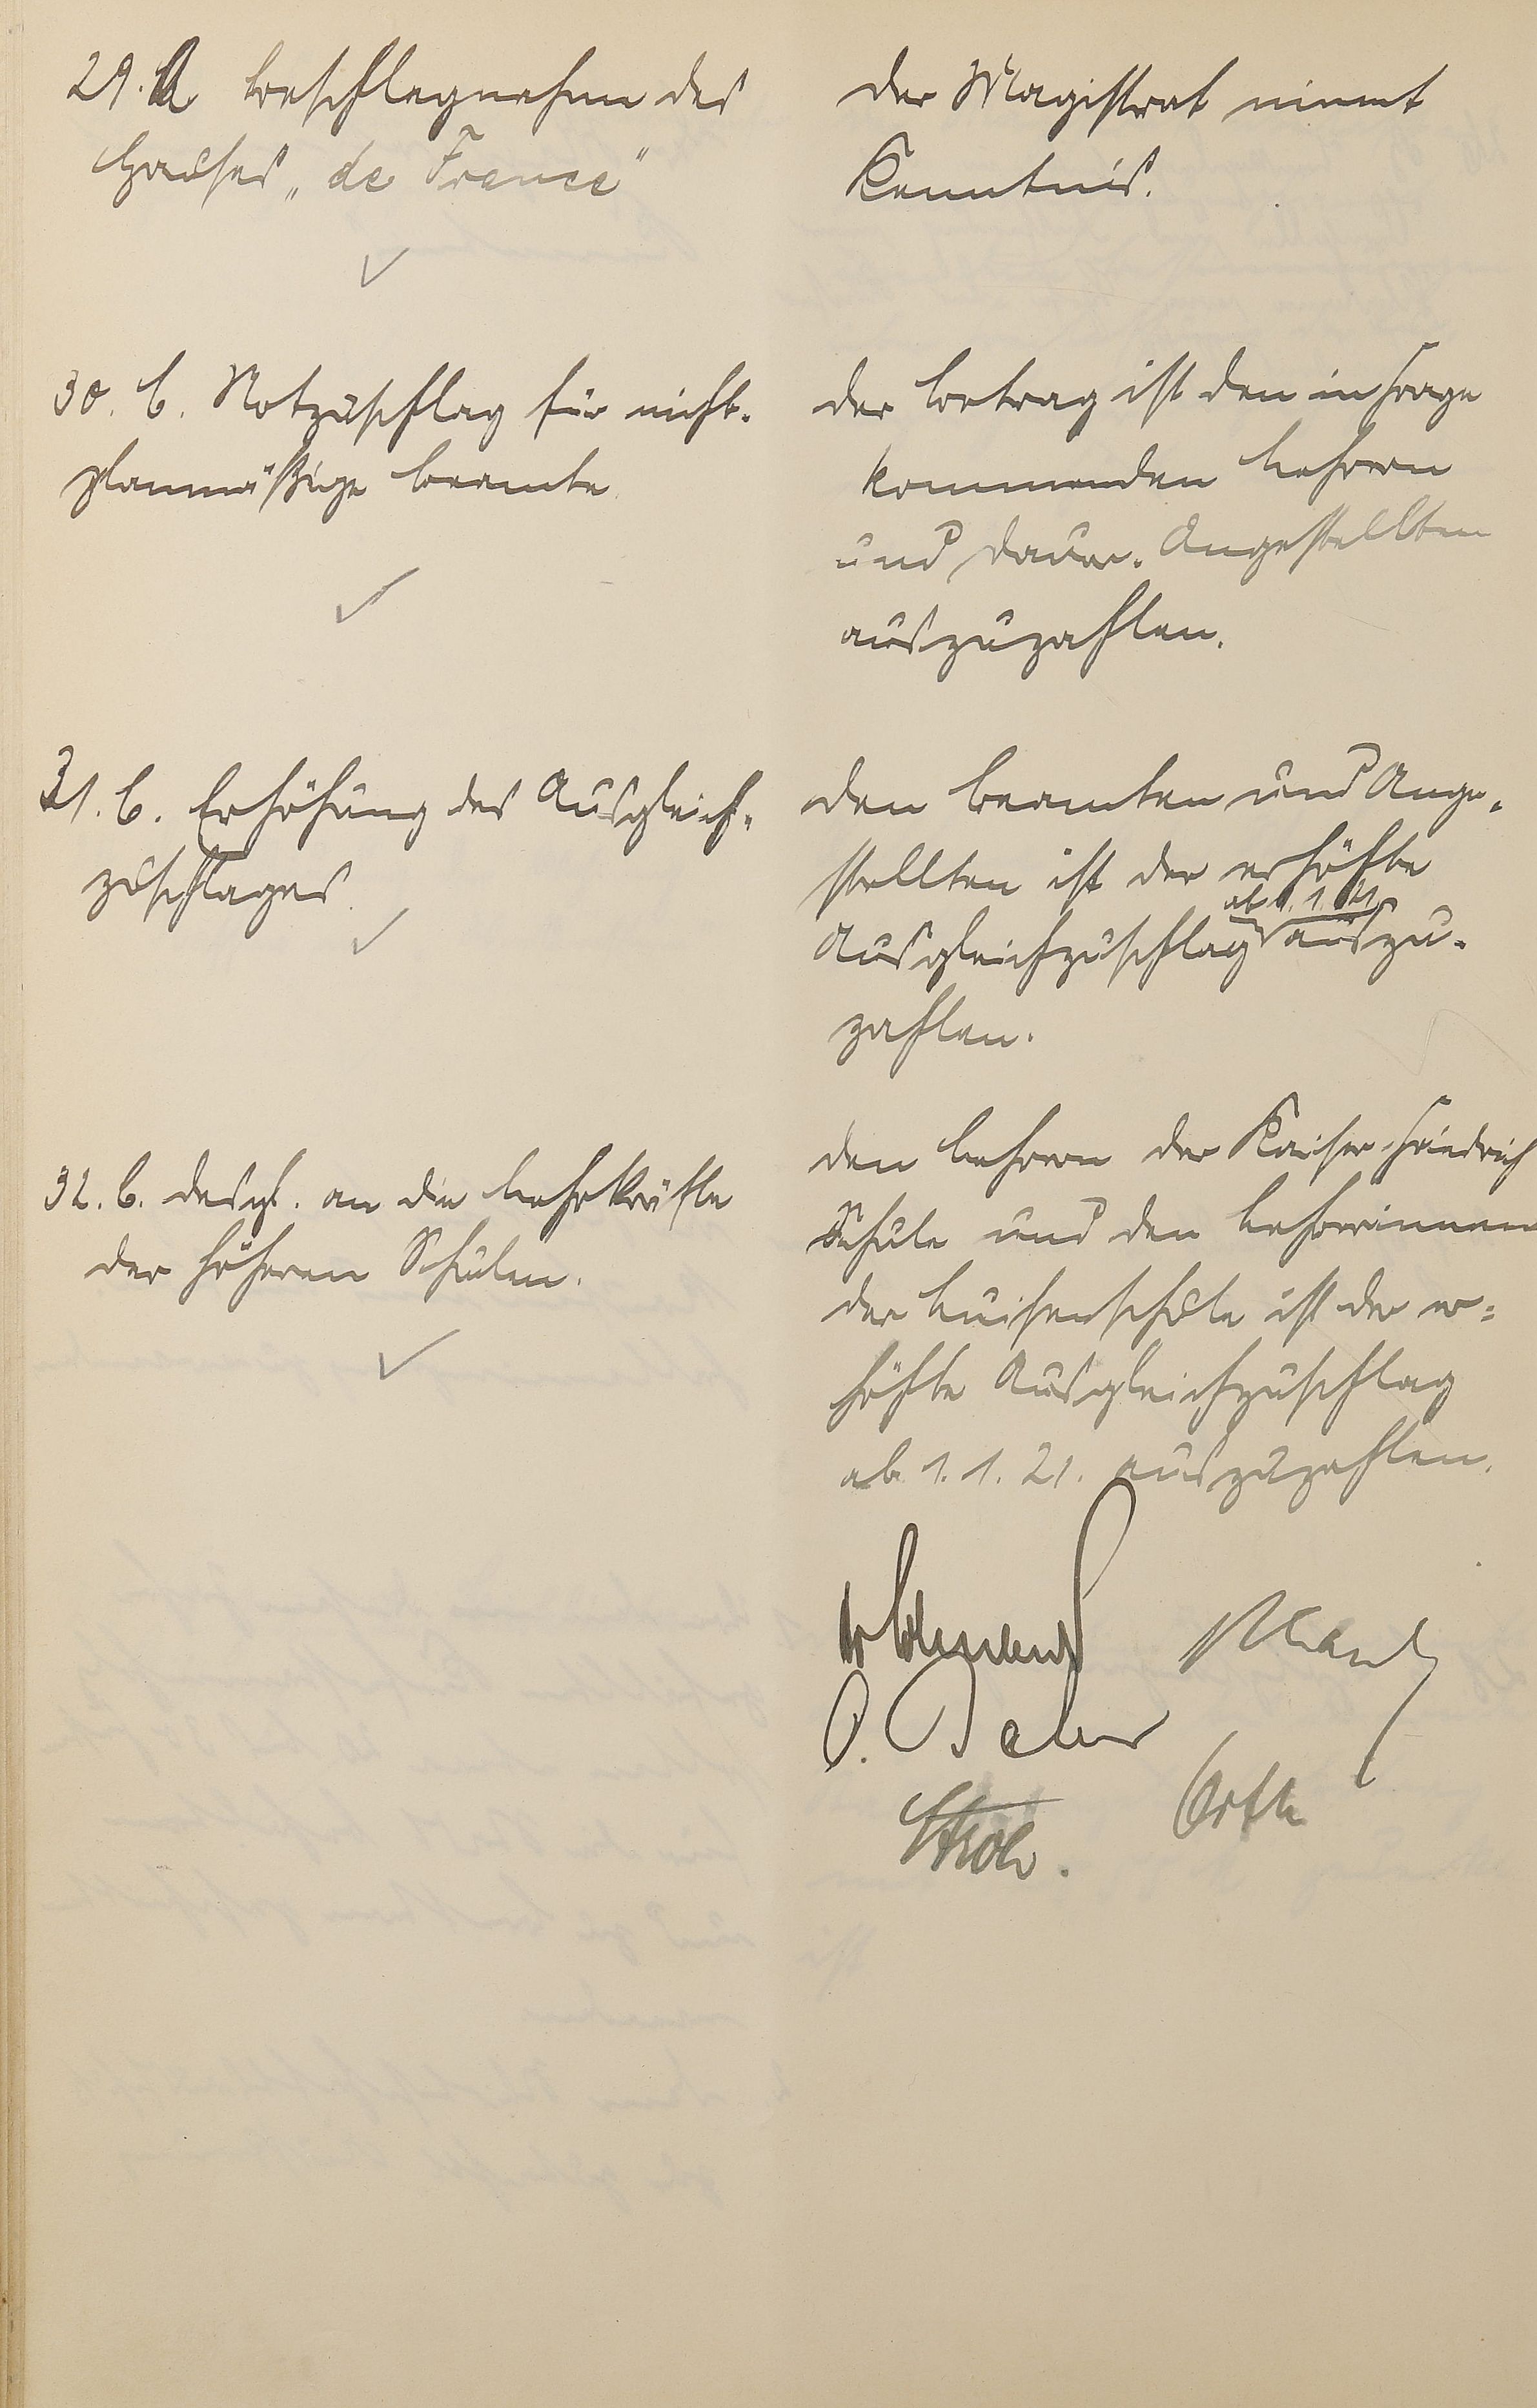 29. A Beschlagnahme des
Hauses „de France"
Der Magistrat nimmt
Kenntnis.
30. B. Notzuschlag für nicht-
planmäßige Beamte
Der Betrag ist den in Frage
kommenden Lehrern
und Dauer-Angestellten
auszuzahlen.
31. B. Erhöhung des Ausgleich-
zuschlages
Den Beamten und Ange-
stellten ist der erhöhte
ab 1. 1. 21
Ausgleichzuschlag auszu-
zahlen.
32. B. desgl. an die Lehrkräfte
der höheren Schulen.
Den Lehrern der Kaiser-Friedrich
Schule und den Lehrerinnen
der Luisenschule ist der er-
höhte Ausgleichzuschlag
ab 1. 1. 21. auszuzahlen.